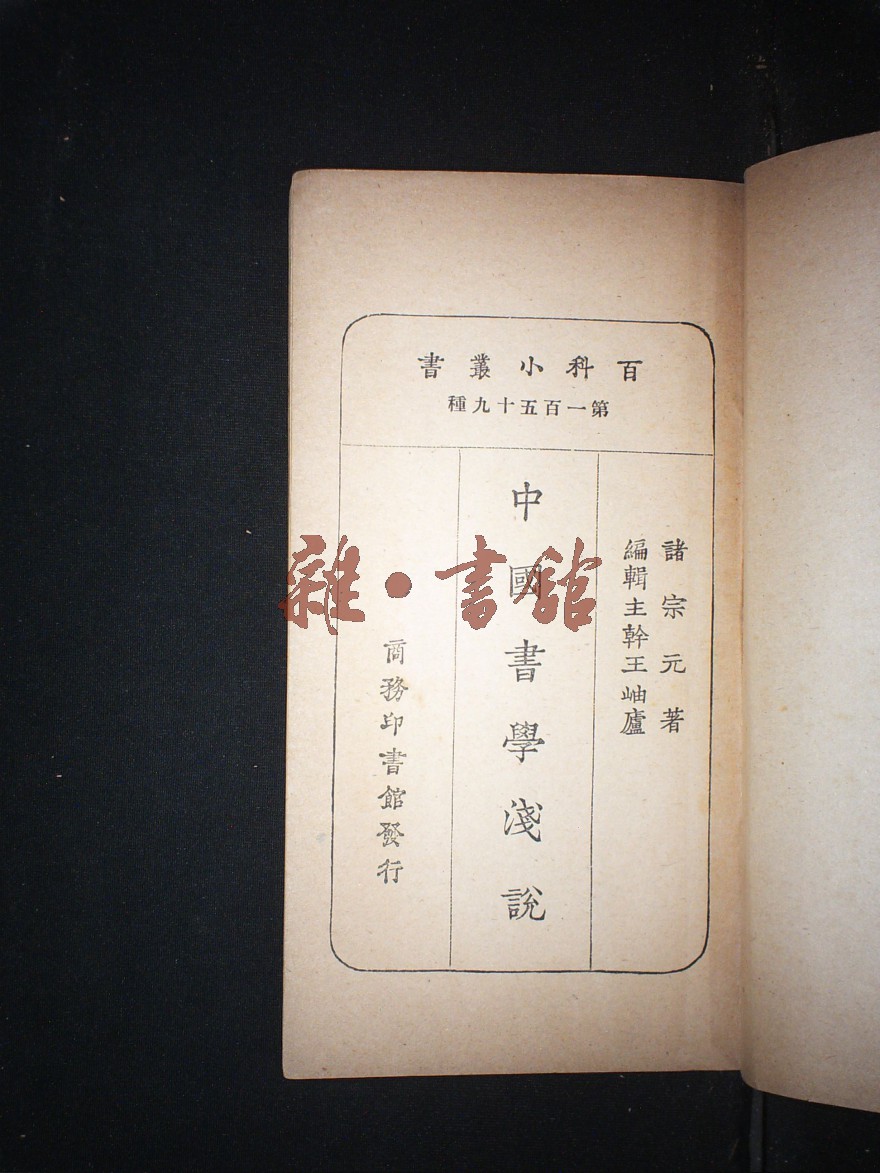 百科小叢書
第一百五十九種
諸宗元著
編輯主幹王岫廬
中國書學淺說
商務印書館發行
雜·書館